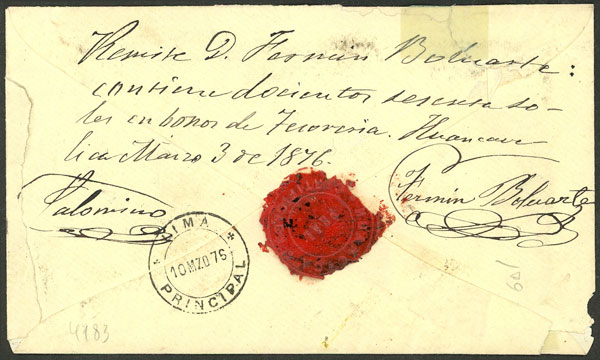 Remite D. Fermin Boluarte:
contiene docientos sesenta so-
les en bonos de Tesoreria. Huancave
lica Marzo 3 de 1876.
Palomino
Fermin Boluarte
LIMA
10 MZO 76
PRINCIPAL
4183